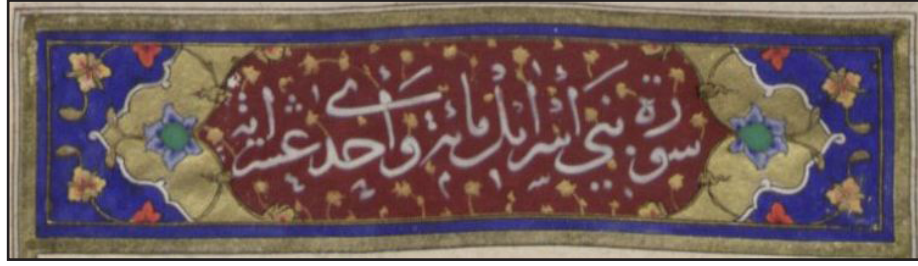 سورة بني اسرائل مائة وأحدى عشر اية